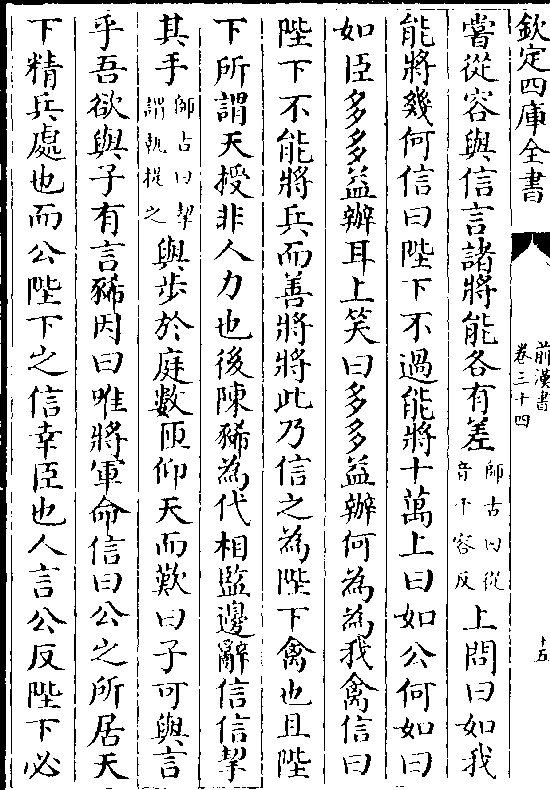 欽定四庫全書
前漢書
卷三十四
十五
嘗從容與信言諸將能各有差師古曰從音千容反上問曰如我
能將幾何信曰陛下不過能將十萬上曰如公何如曰
如臣多多益辦耳上笑曰多多益辦何為為我禽信曰
陛下不能將兵而善將將此乃信之為陛下禽也且陛
下所謂天授非人力也後陳豨為代相監邊辭信信挈
其手師古曰挈謂執提之與步於庭數匝仰天而歎曰子可與言
乎吾欲與子有言豨因曰唯將軍命信曰公之所居天
下精兵處也而公陛下之信幸臣也人言公反陛下必